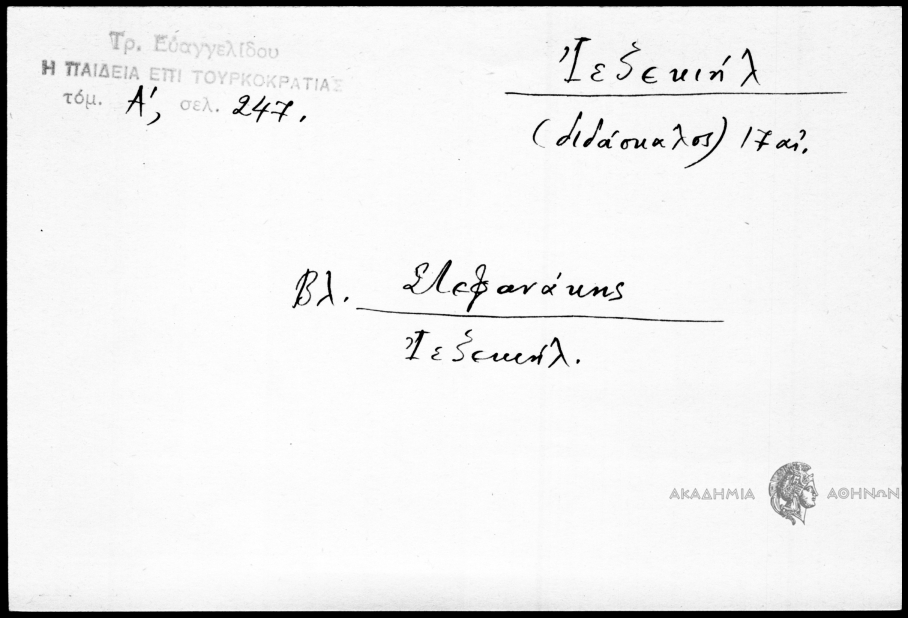 Τρ. Εὐαγγελίδου
Η ΠΑΙΔΕΙΑ ΕΠΙ ΤΟΥΡΚΟΚΡΑΤΙΑΣ
τόμ. Α', σελ. 247.
Ἰεζεκιήλ
(διδάσκαλος) 17 αἰ.
Βλ. Στεφανάκης
Ἰεζεκιήλ.
ΑΚΑΔΗΜΙΑ ΑΘΗΝΩΝ